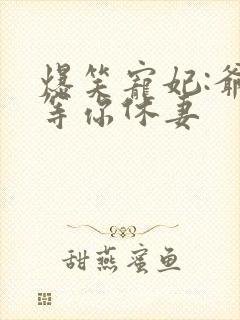 爆笑宠妃:爷
等你休妻
甜燕蜜鱼